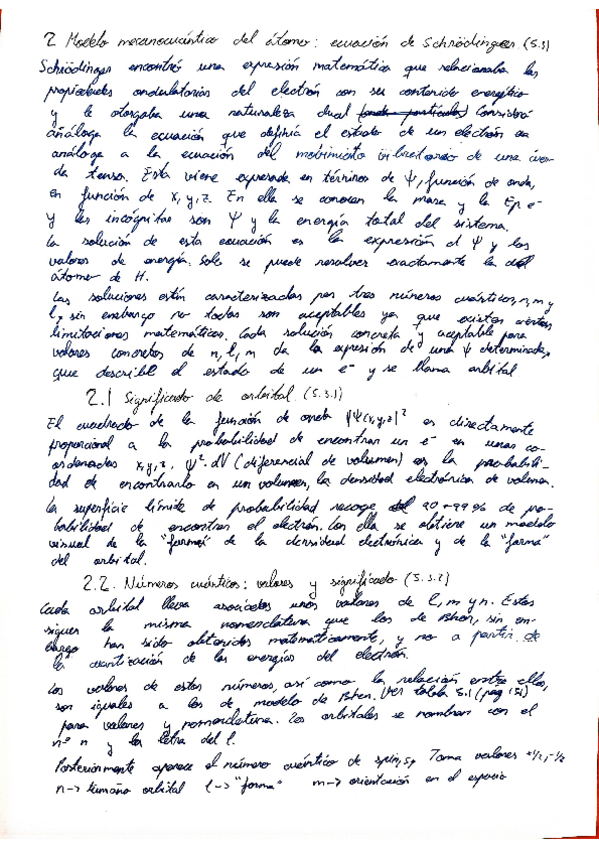 2 Modelo mecanocuántico del átomo: ecuación de Schrödinger (5.3)
Schrödinger encontró una expresión matemática que relacionaba las
propiedades ondulatorias del electrón con su contenido energético
y le otorgaba una naturaleza dual (onda-partícula) Consideró
análoga la ecuación que definía el estado de un electrón
análoga a la ecuación del movimiento vibratorio de una
da tensa. Esta viene expresada en términos de Ψ, función de onda,
en función de x, y, z. En ella se conocen la masa y la Ep e-
y las incógnitas son Ψ y la energía total del sistema.
La solución de esta ecuación es la expresión d Ψ y los
valores de energía. Solo se puede resolver exactamente la del
átomo de H.
Las soluciones están caracterizadas por tres números cuánticos, n, m y
l, sin embargo no todas son aceptables ya que existen ciertas
limitaciones matemáticas. Cada solución concreta y aceptable para
valores concretos de n, l, m da la expresión de una Ψ determinada,
que describe el estado de un e- y se llama orbital
2.1 Significado de orbital (5.3.1)
El cuadrado de la función de onda |Ψ(x,y,z)|² es directamente
proporcional a la probabilidad de encontrar un e- en unas co-
ordenadas x,y,z. Ψ²·dV (diferencial de volumen) es la probabili-
dad de encontrarlo en un volumen, la densidad electrónica de volumen.
La superficie límite de probabilidad recoge del 90-99% de pro-
babilidad de encontrar el electrón. Con ella se obtiene un modelo
visual de la "forma" de la densidad electrónica y de la "forma"
del orbital.
2.2. Números cuánticos: valores y significado (5.3.2)
Cada orbital lleva asociados unos valores de l, m y n. Estos
siguen la misma nomenclatura que los de Bhor, sin em-
bargo han sido obtenidos matemáticamente, y no a partir de
la cuantización de las energías del electrón.
Los valores de estos números, así como la relación entre ellos,
son iguales a los de modelo de Bhor. Ver tabla 5.1 (pág 151)
para valores y nomenclatura. Los orbitales se nombran con el
nº n y la letra del l.
Posteriormente aparece el número cuántico de spin, s, Toma valores +1/2, -1/2
n -> tamaño orbital l -> "forma" m -> orientación en el espacio